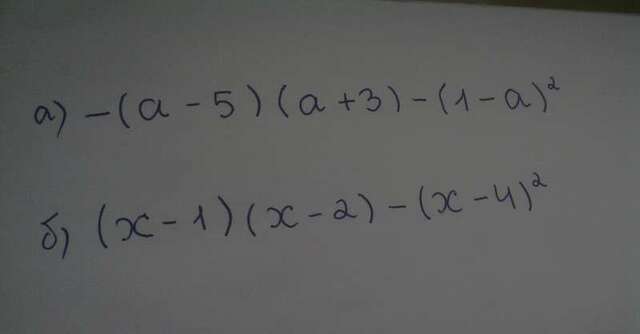 а) -(a-5)(a+3)-(1-a)²
б) (x-1)(x-2)-(x-4)²